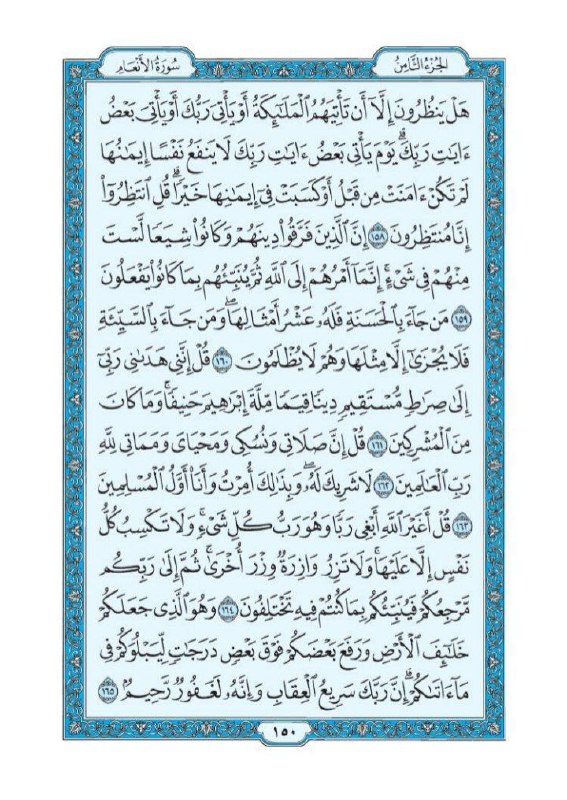 الجزء الثامن
سورة الأنعام
هَلْ يَنظُرُونَ إِلَّا أَن تَأْتِيَهُمُ الْمَلَٰٓئِكَةُ أَوْ يَأْتِىَ رَبُّكَ أَوْ يَأْتِىَ بَعْضُ
ءَايَٰتِ رَبِّكَ ۗ يَوْمَ يَأْتِى بَعْضُ ءَايَٰتِ رَبِّكَ لَا يَنفَعُ نَفْسًا إِيمَٰنُهَا
لَمْ تَكُنْ ءَامَنَتْ مِن قَبْلُ أَوْ كَسَبَتْ فِىٓ إِيمَٰنِهَا خَيْرًا ۗ قُلِ انتَظِرُوٓا۟
إِنَّا مُنتَظِرُونَ ١٥٨ إِنَّ الَّذِينَ فَرَّقُوا۟ دِينَهُمْ وَكَانُوا۟ شِيَعًا لَّسْتَ
مِنْهُمْ فِى شَىْءٍ ۚ إِنَّمَآ أَمْرُهُمْ إِلَى اللَّهِ ثُمَّ يُنَبِّئُهُم بِمَا كَانُوا۟ يَفْعَلُونَ
١٥٩ مَن جَآءَ بِالْحَسَنَةِ فَلَهُۥ عَشْرُ أَمْثَالِهَا ۖ وَمَن جَآءَ بِالسَّيِّئَةِ
فَلَا يُجْزَىٰٓ إِلَّا مِثْلَهَا وَهُمْ لَا يُظْلَمُونَ ١٦٠ قُلْ إِنَّنِى هَدَىٰنِى رَبِّىٓ
إِلَىٰ صِرَٰطٍ مُّسْتَقِيمٍ دِينًا قِيَمًا مِّلَّةَ إِبْرَٰهِيمَ حَنِيفًا ۚ وَمَا كَانَ
مِنَ الْمُشْرِكِينَ ١٦١ قُلْ إِنَّ صَلَاتِى وَنُسُكِى وَمَحْيَاىَ وَمَمَاتِى لِلَّهِ
رَبِّ الْعَٰلَمِينَ ١٦٢ لَا شَرِيكَ لَهُۥ ۖ وَبِذَٰلِكَ أُمِرْتُ وَأَنَا۠ أَوَّلُ الْمُسْلِمِينَ
١٦٣ قُلْ أَغَيْرَ اللَّهِ أَبْغِى رَبًّا وَهُوَ رَبُّ كُلِّ شَىْءٍ ۚ وَلَا تَكْسِبُ كُلُّ
نَفْسٍ إِلَّا عَلَيْهَا ۚ وَلَا تَزِرُ وَازِرَةٌ وِزْرَ أُخْرَىٰ ۚ ثُمَّ إِلَىٰ رَبِّكُم
مَّرْجِعُكُمْ فَيُنَبِّئُكُم بِمَا كُنتُمْ فِيهِ تَخْتَلِفُونَ ١٦٤ وَهُوَ الَّذِى جَعَلَكُمْ
خَلَٰٓئِفَ الْأَرْضِ وَرَفَعَ بَعْضَكُمْ فَوْقَ بَعْضٍ دَرَجَٰتٍ لِّيَبْلُوَكُمْ فِى
مَآ ءَاتَىٰكُمْ ۗ إِنَّ رَبَّكَ سَرِيعُ الْعِقَابِ وَإِنَّهُۥ لَغَفُورٌ رَّحِيمٌ ١٦٥
١٥٠